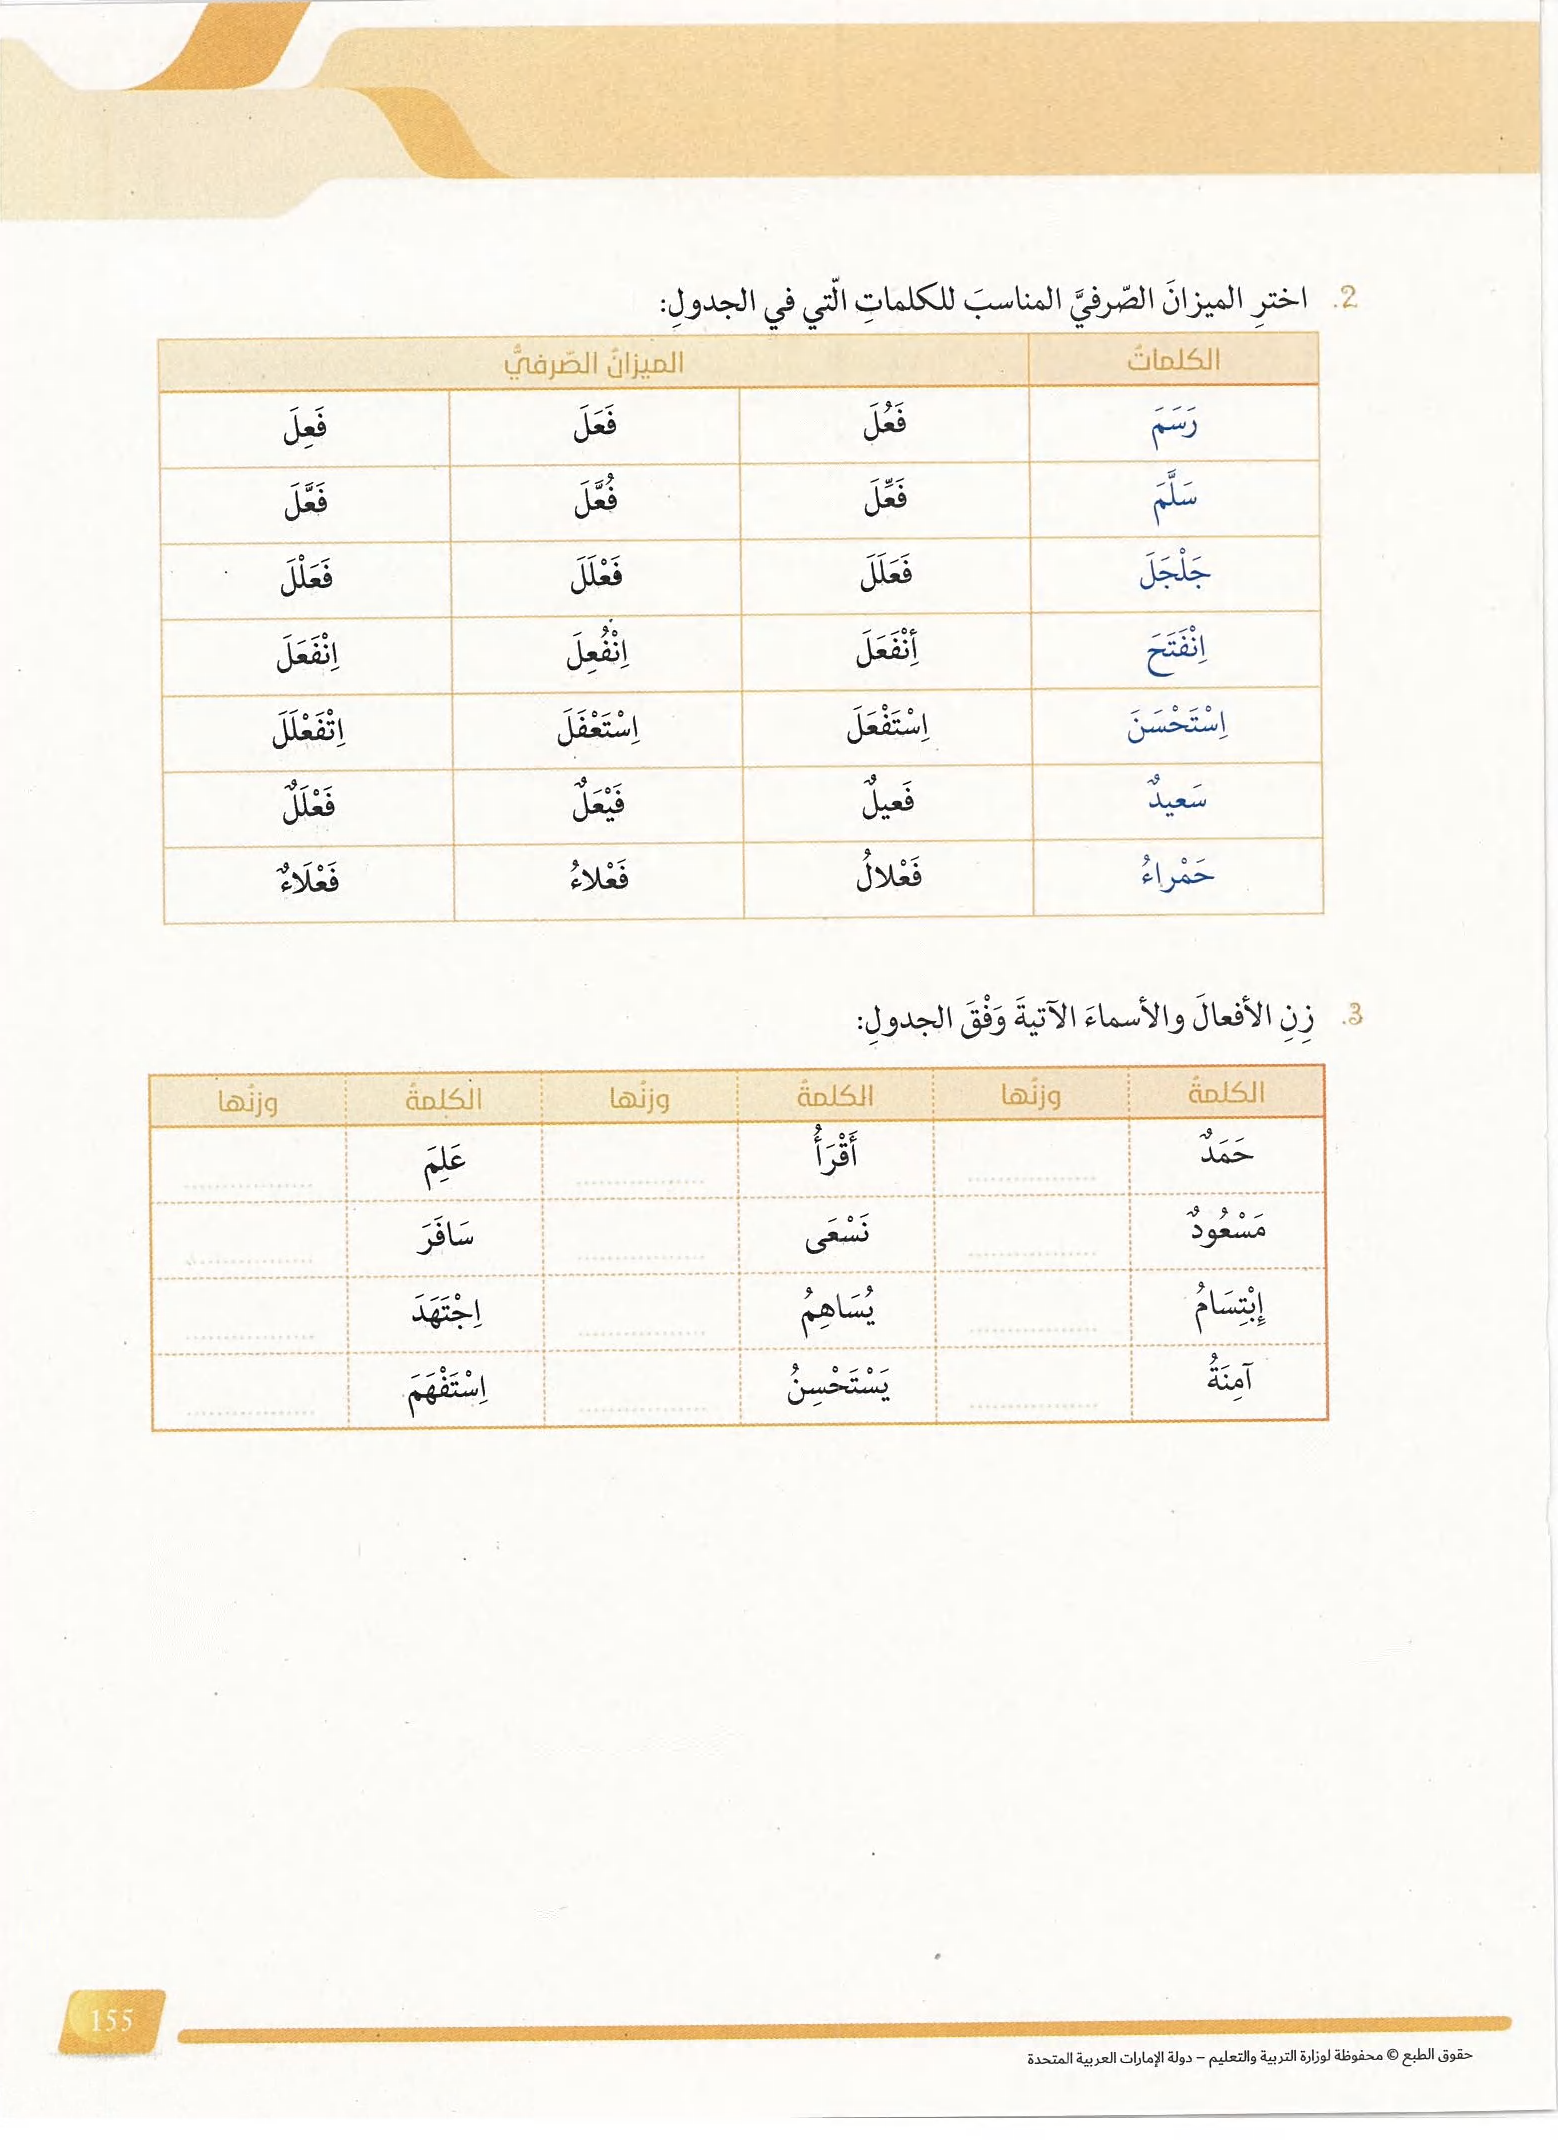 2. اخترِ الميزانَ الصّرفيَّ المناسبَ للكلماتِ الّتي في الجدولِ:
الكلماتُ الميزانُ الصّرفيُّ
رَسَمَ فَعُلَ فَعَلَ فَعِلَ
سَلَّمَ فَعِّلَ فُعَّلَ فَعَّلَ
جَلْجَلَ فَعَلَلَ فَعْلَلَ فَعَلْلَ
اِنْفَتَحَ أنْفَعَلَ اِنْفُعِلَ اِنْفَعَلَ
اِسْتَحْسَنَ اِسْتَفْعَلَ اِسْتَعْفَلَ اِتْفَعْلَلَ
سَعيدٌ فَعيلٌ فَيْعَلٌ فَعْلَلٌ
حَمْراءُ فَعْلالُ فَعْلاءُ فَعْلَاءٌ
3. زِنِ الأفعالَ والأسماءَ الآتيةَ وَفْقَ الجدولِ:
الكلمةُ وزنُها الكلمةُ وزنُها الكلمةُ وزنُها
حَمَدٌ أَقْرَأُ عَلِمَ
مَسْعُودٌ نَسْعَى سَافَرَ
إِبْتِسَامُ يُسَاهِمُ اِجْتَهَدَ
آمِنَةُ يَسْتَحْسِنُ اِسْتَفْهَمَ
155
حقوق الطبع © محفوظة لوزارة التربية والتعليم – دولة الإمارات العربية المتحدة